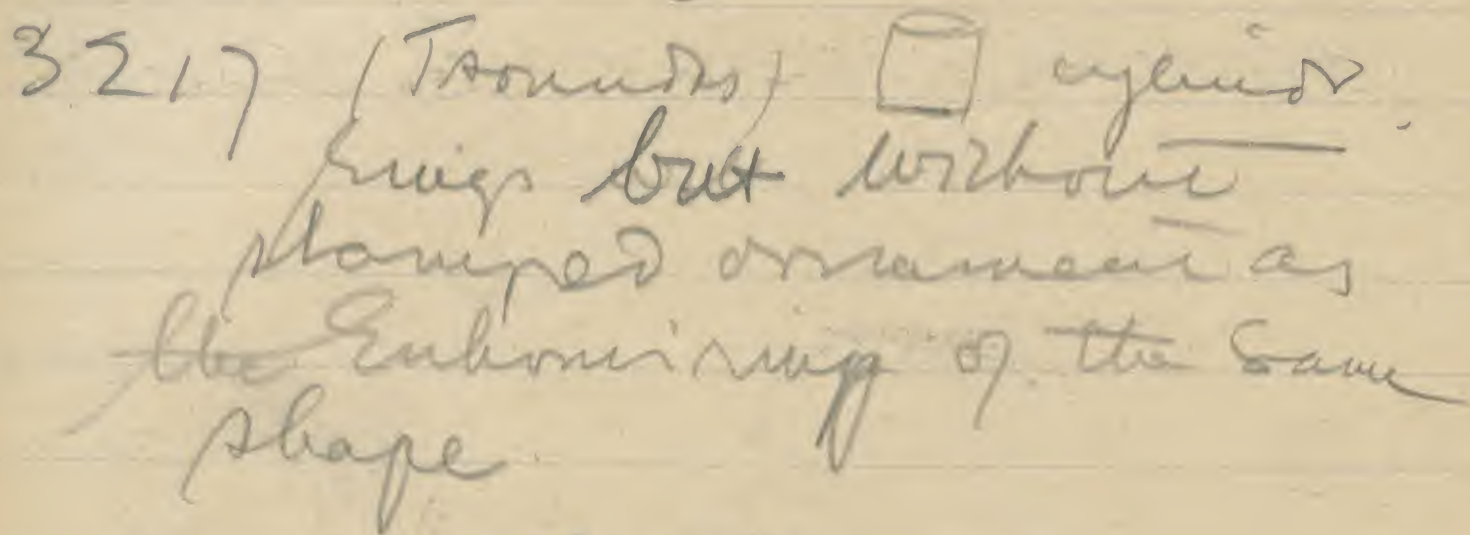 3217 (Tsoundas) cylindr.
rings but without
stamped ornament as
the Enkomi ring of the same
shape